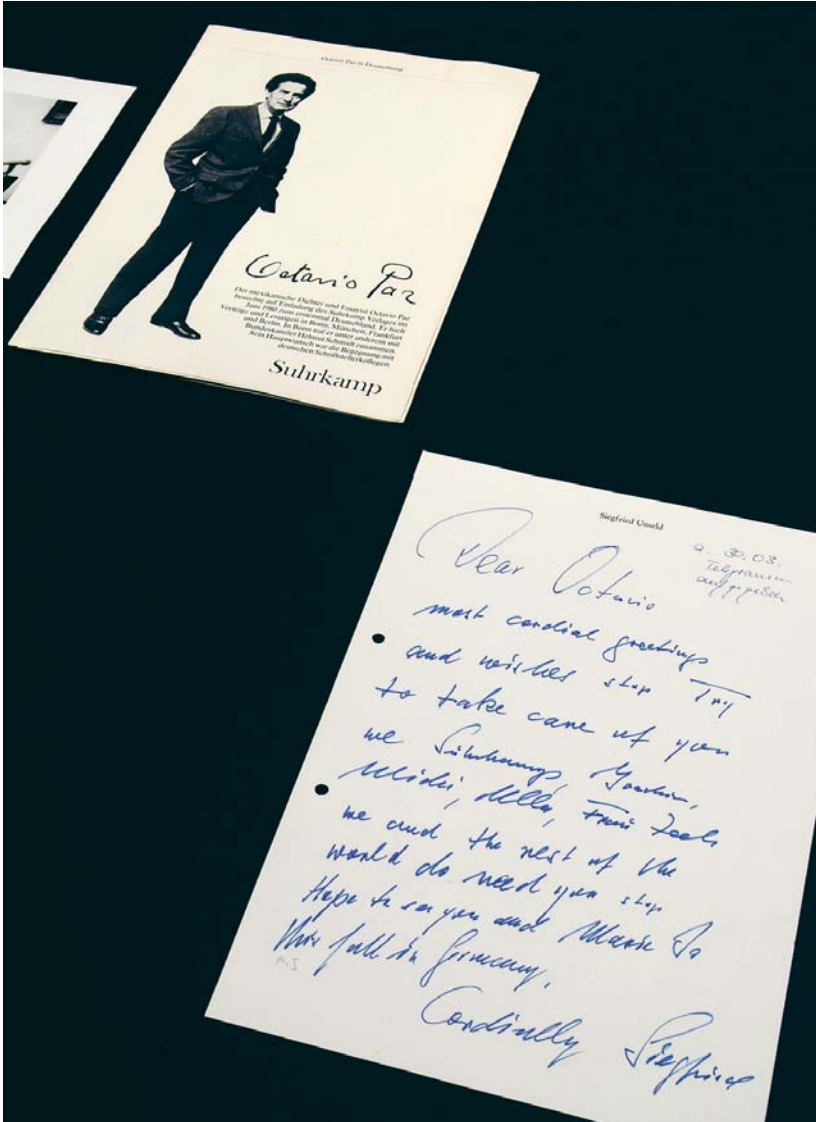 Octavio Paz in Deutschland
Octavio Paz
Der mexikanische Dichter und Essayist Octavio Paz
besuchte auf Einladung des Suhrkamp Verlages im
Juni 1980 zum erstenmal Deutschland. Er hielt
Vorträge und Lesungen in Bonn, München, Frankfurt
und Berlin. In Bonn traf er unter anderem mit
Bundeskanzler Helmut Schmidt zusammen.
Sein Hauptwunsch war die Begegnung mit
deutschen Schriftstellerkollegen.
Suhrkamp
Siegfried Unseld
30.03.
Telegramm
aufgegeben
Dear Octavio
most cordial greetings
and wishes stop Try
to take care of you
we Suhrkamps, Joachim,
Michi, Frau Zeeh
we and the rest of the
world do need you stop
Hope to see you and Marie Jo
this fall in Germany,
Cordially Siegfried